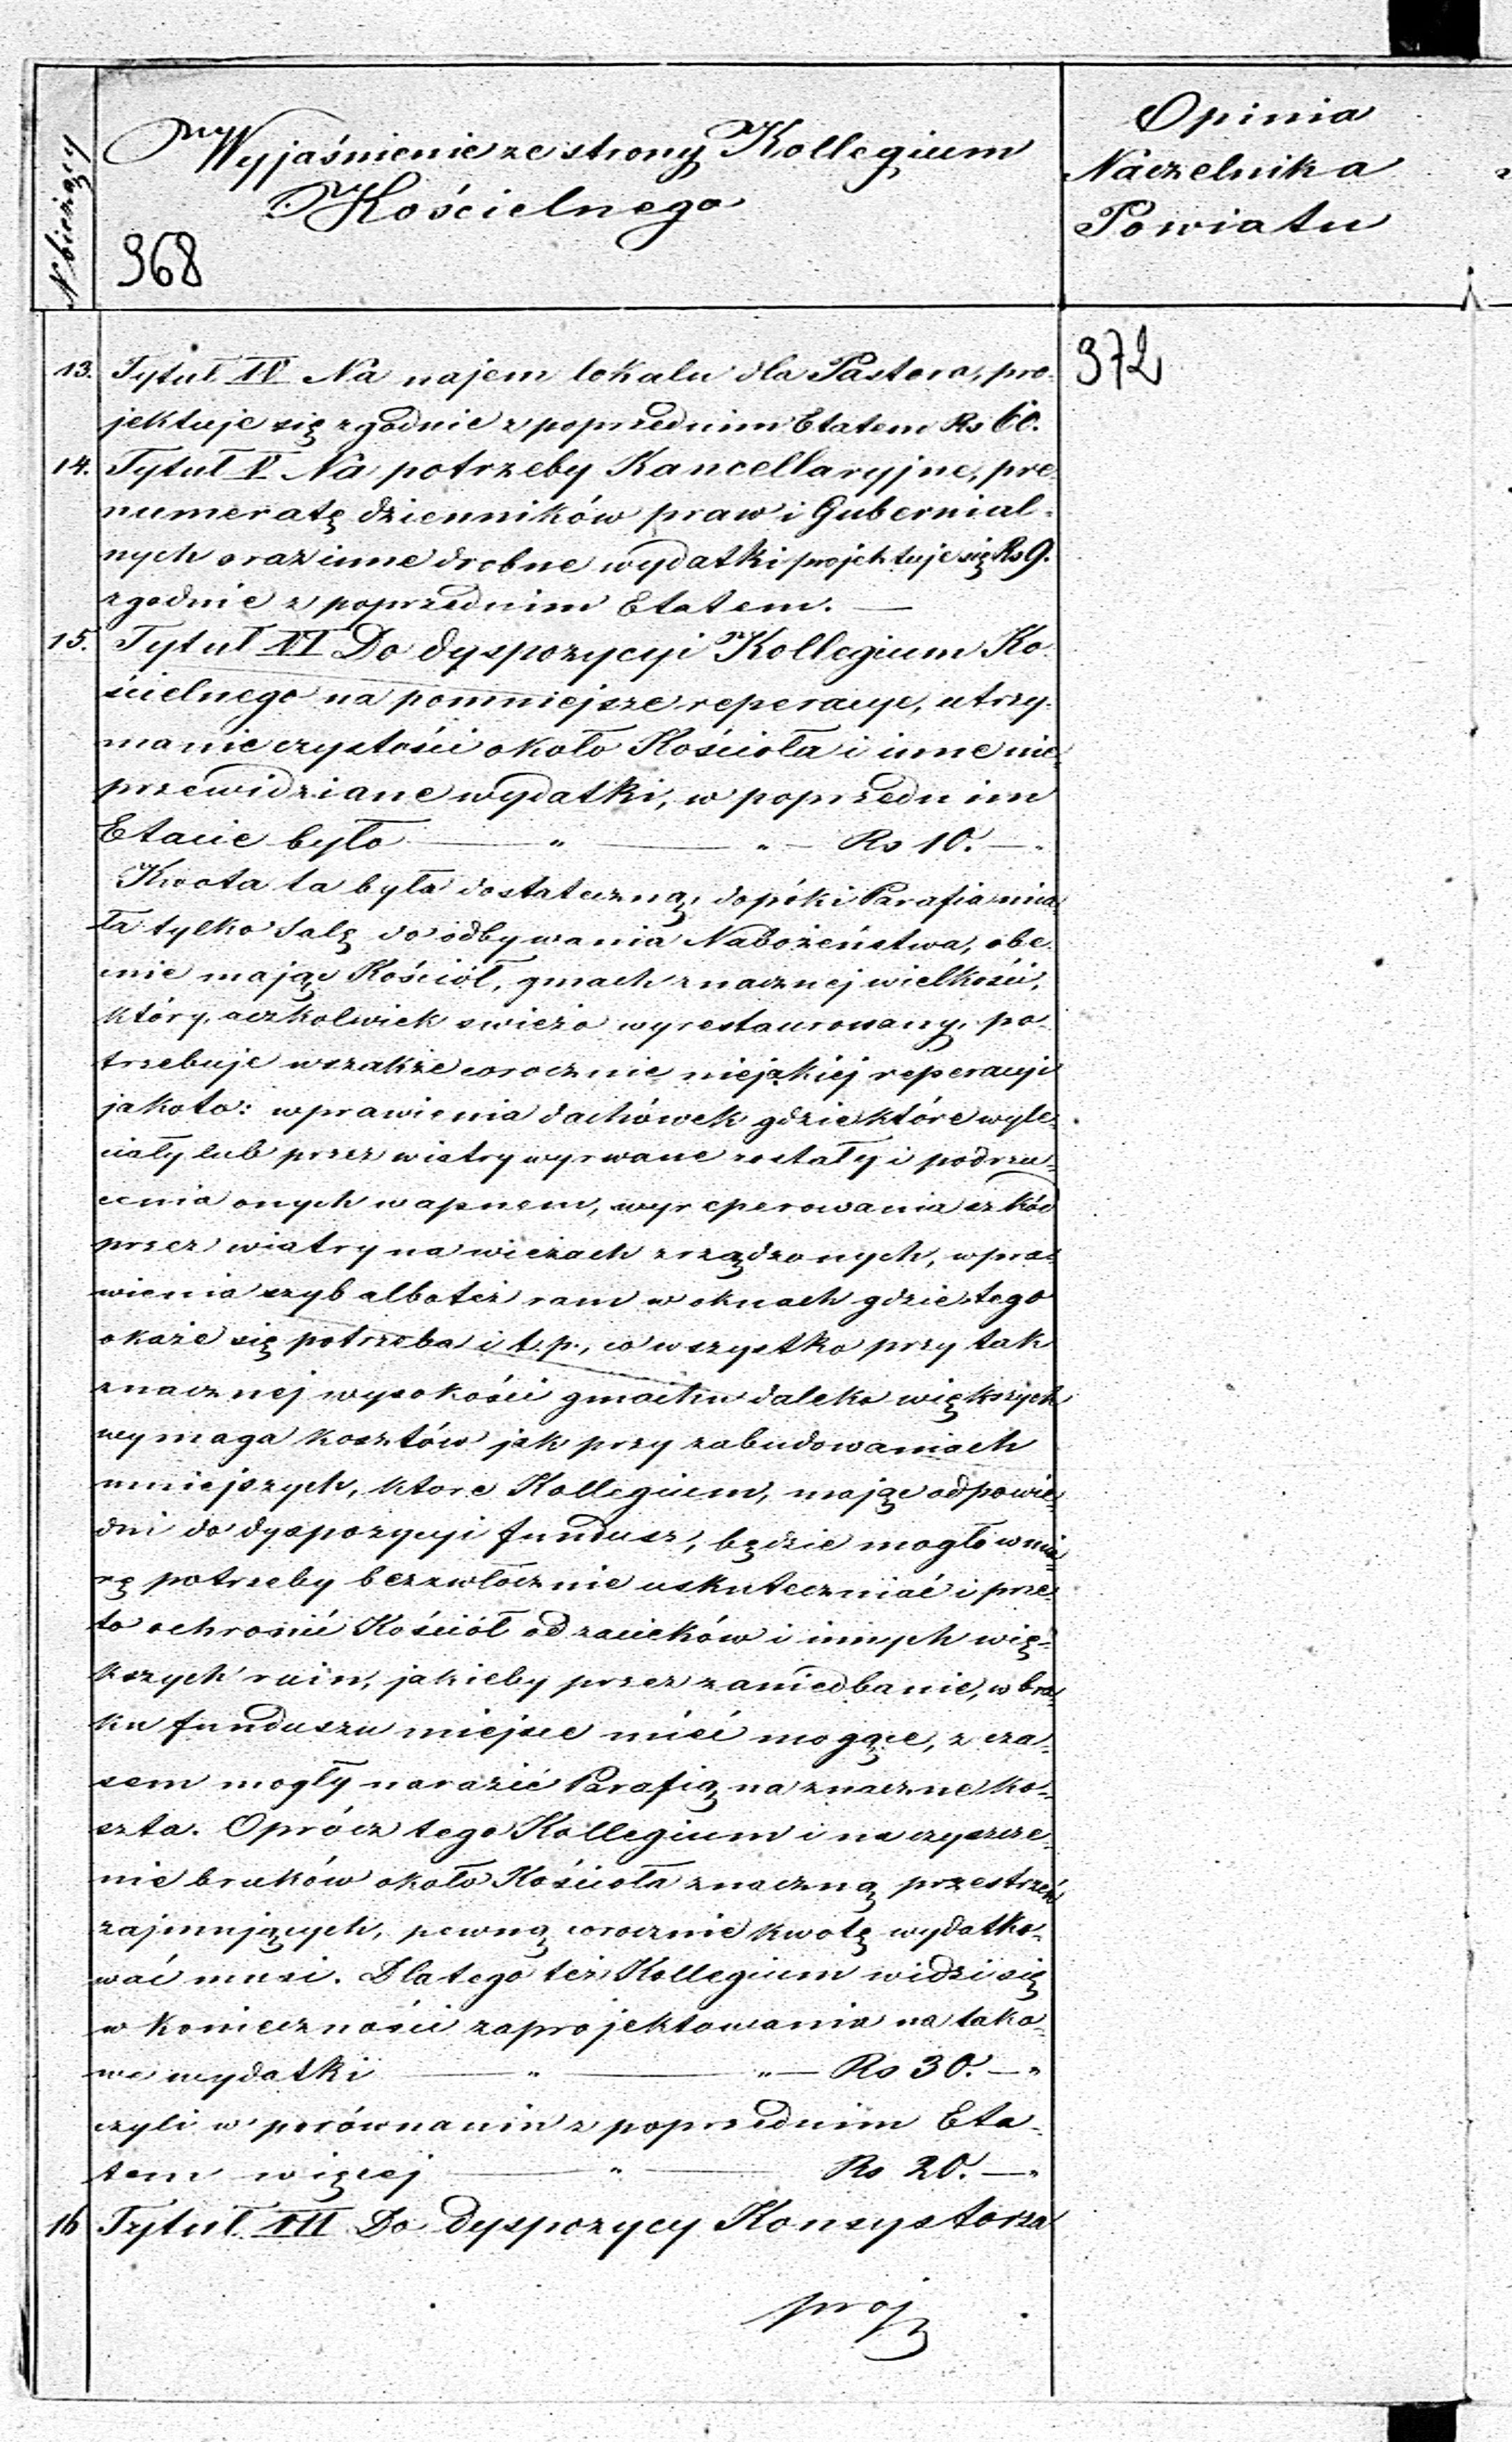 N bieżący
Wyjaśnienie ze strony Kollegium
Kościelnego
968
Opinia
Naczelnika
Powiatu
972
13. Tytuł IV Na najem lokalu dla Pastora, pro-
jektuje się zgodnie z poprzednim Etatem Rs 60.
14. Tytuł V Na potrzeby Kancellaryjne, pre-
numeratę dzienników praw i Gubernial-
nych oraz inne drobne wydatki projektuje się Rs 9.
zgodnie z poprzednim Etatem. —
15. Tytuł VI Do dyspozycyi Kollegium Ko-
ścielnego na pomniejsze reperacye, utrzy-
manie czystości około Kościoła i inne nie-
przewidziane wydatki, w poprzednim
Etacie było — " — " — Rs 10. — "
Kwota ta była dostateczną, dopóki Parafia mia-
ła tylko Salę do odbywania Nabożeństwa, obe-
cnie mając Kościół, gmach znacznej wielkości,
który, aczkolwiek swieżo wyrestaurowany, po-
trzebuje wszakże corocznie niejakiej reperacyi
jakoto: wprawienia dachówek gdzie które wyle-
ciały lub przez wiatry wyrwane zostały i podrzu-
cenia onych wapnem, wyreperowania szkód
przez wiatry na wieżach zrządzonych, wpra-
wienia szyb albo też ram w oknach gdzie tego
okaże się potrzeba i t. p., co wszystko przy tak
znacznej wysokości gmachu daleko większych
wymaga kosztów jak przy zabudowaniach
mniejszych, ktore Kollegium, mając odpowie-
dni do dyspozycyi fundusz, będzie mogło w mia-
rę potrzeby bezzwłocznie uskuteczniać i prze-
to ochronić Kościół od zacieków i innych wię-
kszych ruin, jakieby przez zaniedbanie, w bra-
ku funduszu miejsce mieć mogące, z cza-
sem mogły narazić Parafią na znaczne ko-
szta. Oprócz tego Kollegium i na czyszcze-
nie bruków około Kościoła znaczną przestrzeń
zajmujących, pewną corocznie kwotę wydatko-
wać musi. Dlatego też Kollegium widzi się
w konieczności zaprojektowania na tako-
we wydatki — " — " — Rs 30. — "
czyli w porównaniu z poprzednim Eta-
tem więcej — " — Rs 20. — "
16 Tytuł VII Do dyspozycy Konsystorza
proj